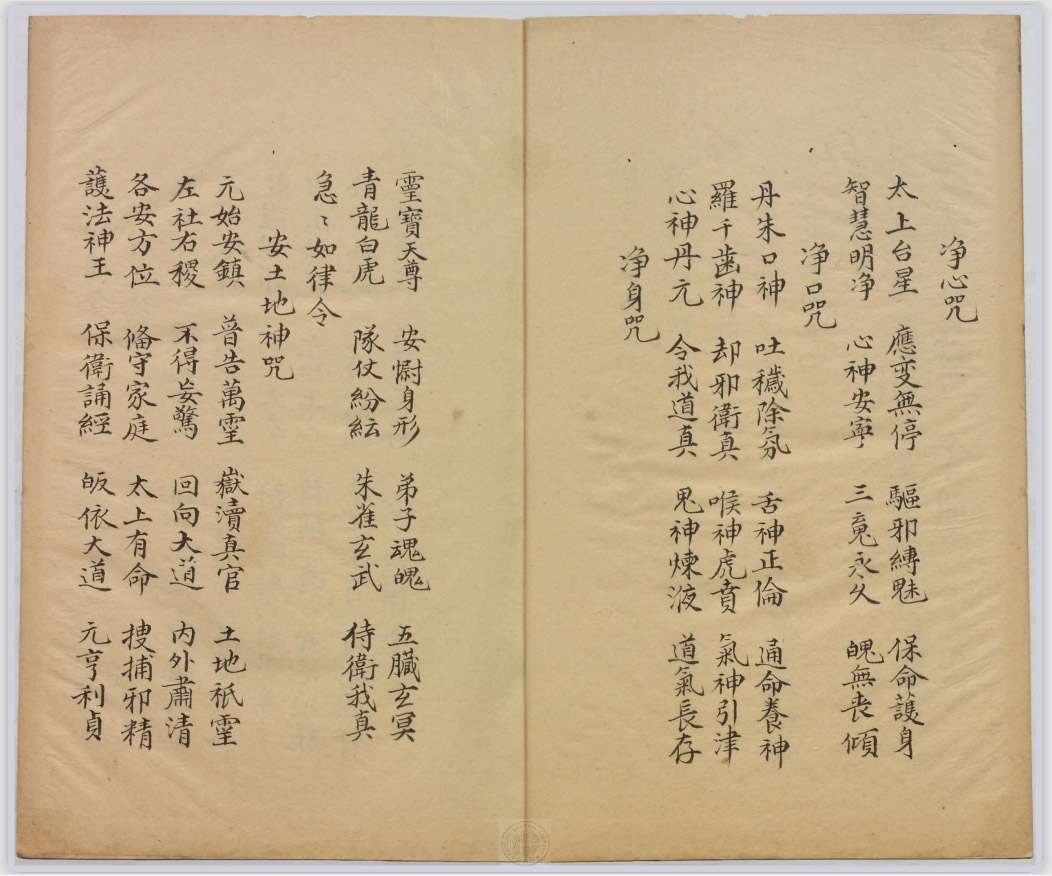 净心咒
太上台星 應变無停 驅邪縛魅 保命護身
智慧明净 心神安寜 三䰟永久 魄無丧傾
净口咒
丹朱口神 吐穢除氛 舌神正倫 通命養神
羅千齒神 却邪衛真 喉神虎賁 氣神引津
心神丹元 令我道真 思神煉液 道氣長存
净身咒
靈寶天尊 安慰身形 弟子魂魄 五臟玄冥
青龍白虎 隊仗紛紜 朱雀玄武 侍衛我真
急〻如律令
安土地神咒
元始安鎮 普告萬靈 嶽瀆真官 土地祇靈
左社右稷 不得妄驚 回向大道 内外肅清
各安方位 俻守家庭 太上有命 搜捕邪精
護法神王 保衛誦經 皈依大道 元亨利貞